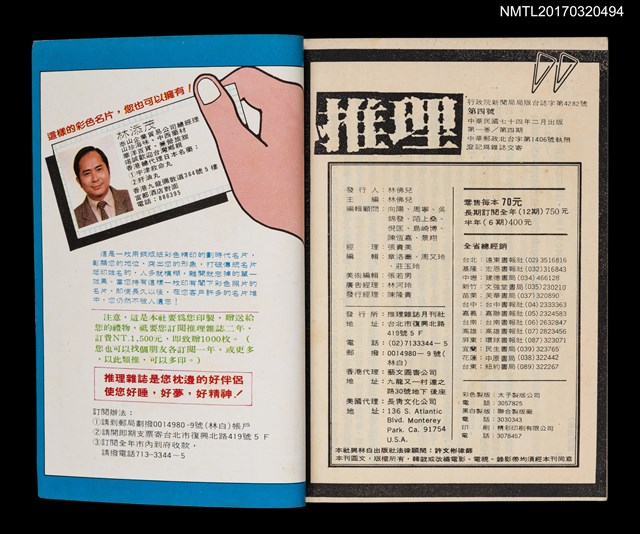 NMTL20170320494
這樣的彩色名片，您也可以擁有！
林添茂
泰山企業貿易公司總經理
山珍海味・中西藥材
華洋百貨・兼營旅遊
竭誠歡迎台灣鄉親
香港總代理日本名藥：
①宇津救命丸
②肝油丸
香港九龍彌敦道364號5樓
富都酒店對面
電話：886395
這是一枚用銅版紙彩色精印的劃時代名片，
彰顯您的地位，突出您的形象，打破傳統名片
祗印姓名的，人多就模糊，離開就忘掉的單一
效果。當您持有這樣一枚印有閣下彩色照片的
名片，即使長久以後，在您客戶許多的名片堆
中，您仍然不被人遺忘！
注意，這是本社要爲您印製，贈送給
您的禮物，祗要您訂閱推理雜誌二年，
訂費NT.1,500元，即致贈1000枚。（
您也可以找個朋友各訂閱一年，或更多，
以此類推，可以多印。）
推理雜誌是您枕邊的好伴侶
使您好睡，好夢，好精神！
訂閱辦法：
①請到郵局劃撥0014980-9號(林白)帳戶
②請開即期支票寄台北市復興北路419號５Ｆ
③訂閱全年市內到府收款，
請撥電話713-3344－5
推理
行政院新聞局局版台誌字第4282號
第四號
中華民國七十四年二月出版
第一卷／第四期
中華郵政北台字第1406號執照
登記爲雜誌交寄
發行人：林佛兒
主編：林佛兒
編輯顧問：向陽、周寧、吳
錦發、陌上桑、
倪匡、島崎博、
陳恆嘉、景翔
經理：張貴美
編輯：章洛臺、周艾玲
、莊玉玲
美術編輯：張若男
廣告經理：林河玲
發行經理：陳隆貴
發行所：推理雜誌月刊社
地址：台北市復興北路
419號５Ｆ
電話：(02)7133344－5
郵撥：0014980－9號(
林白)
香港代理：藝文圖書公司
地址：九龍又一村達之
路30號地下後座
美國代理：長青文化公司
地址：136 S. Atlantic
Blvd. Monterey
Park. Ca. 91754
U.S.A.
零售每本70元
長期訂閱全年(12期)750元
半年(6期)400元
全省總經銷
台北：遠東書報社(02)3516816
基隆：宏恩書報社(032)316843
中壢：建德書局(034)466128
新竹：文強堂書局(035)230210
苗栗：芙華書局(037)320890
台中：台中書報社(04)2333363
嘉義：嘉聯書報社(05)2324583
台南：台南書報社(06)2632847
高雄：高雄書報社(07)2823456
屏東：環球書報社(087)323071
宜蘭：民生書局(039)323765
花蓮：中原書局(038)322442
台東：紐約書局(089)322267
彩色製版：太子製版公司
電話：3057825
黑白製版：聯合製版廠
電話：3030343
印刷：精彩印刷有限公司
電話：3078457
本社與林白出版社法律顧問：許文彬律師
本刊圖文，版權所有，轉載或改編電影、電視、錄影帶均須經本刊同意